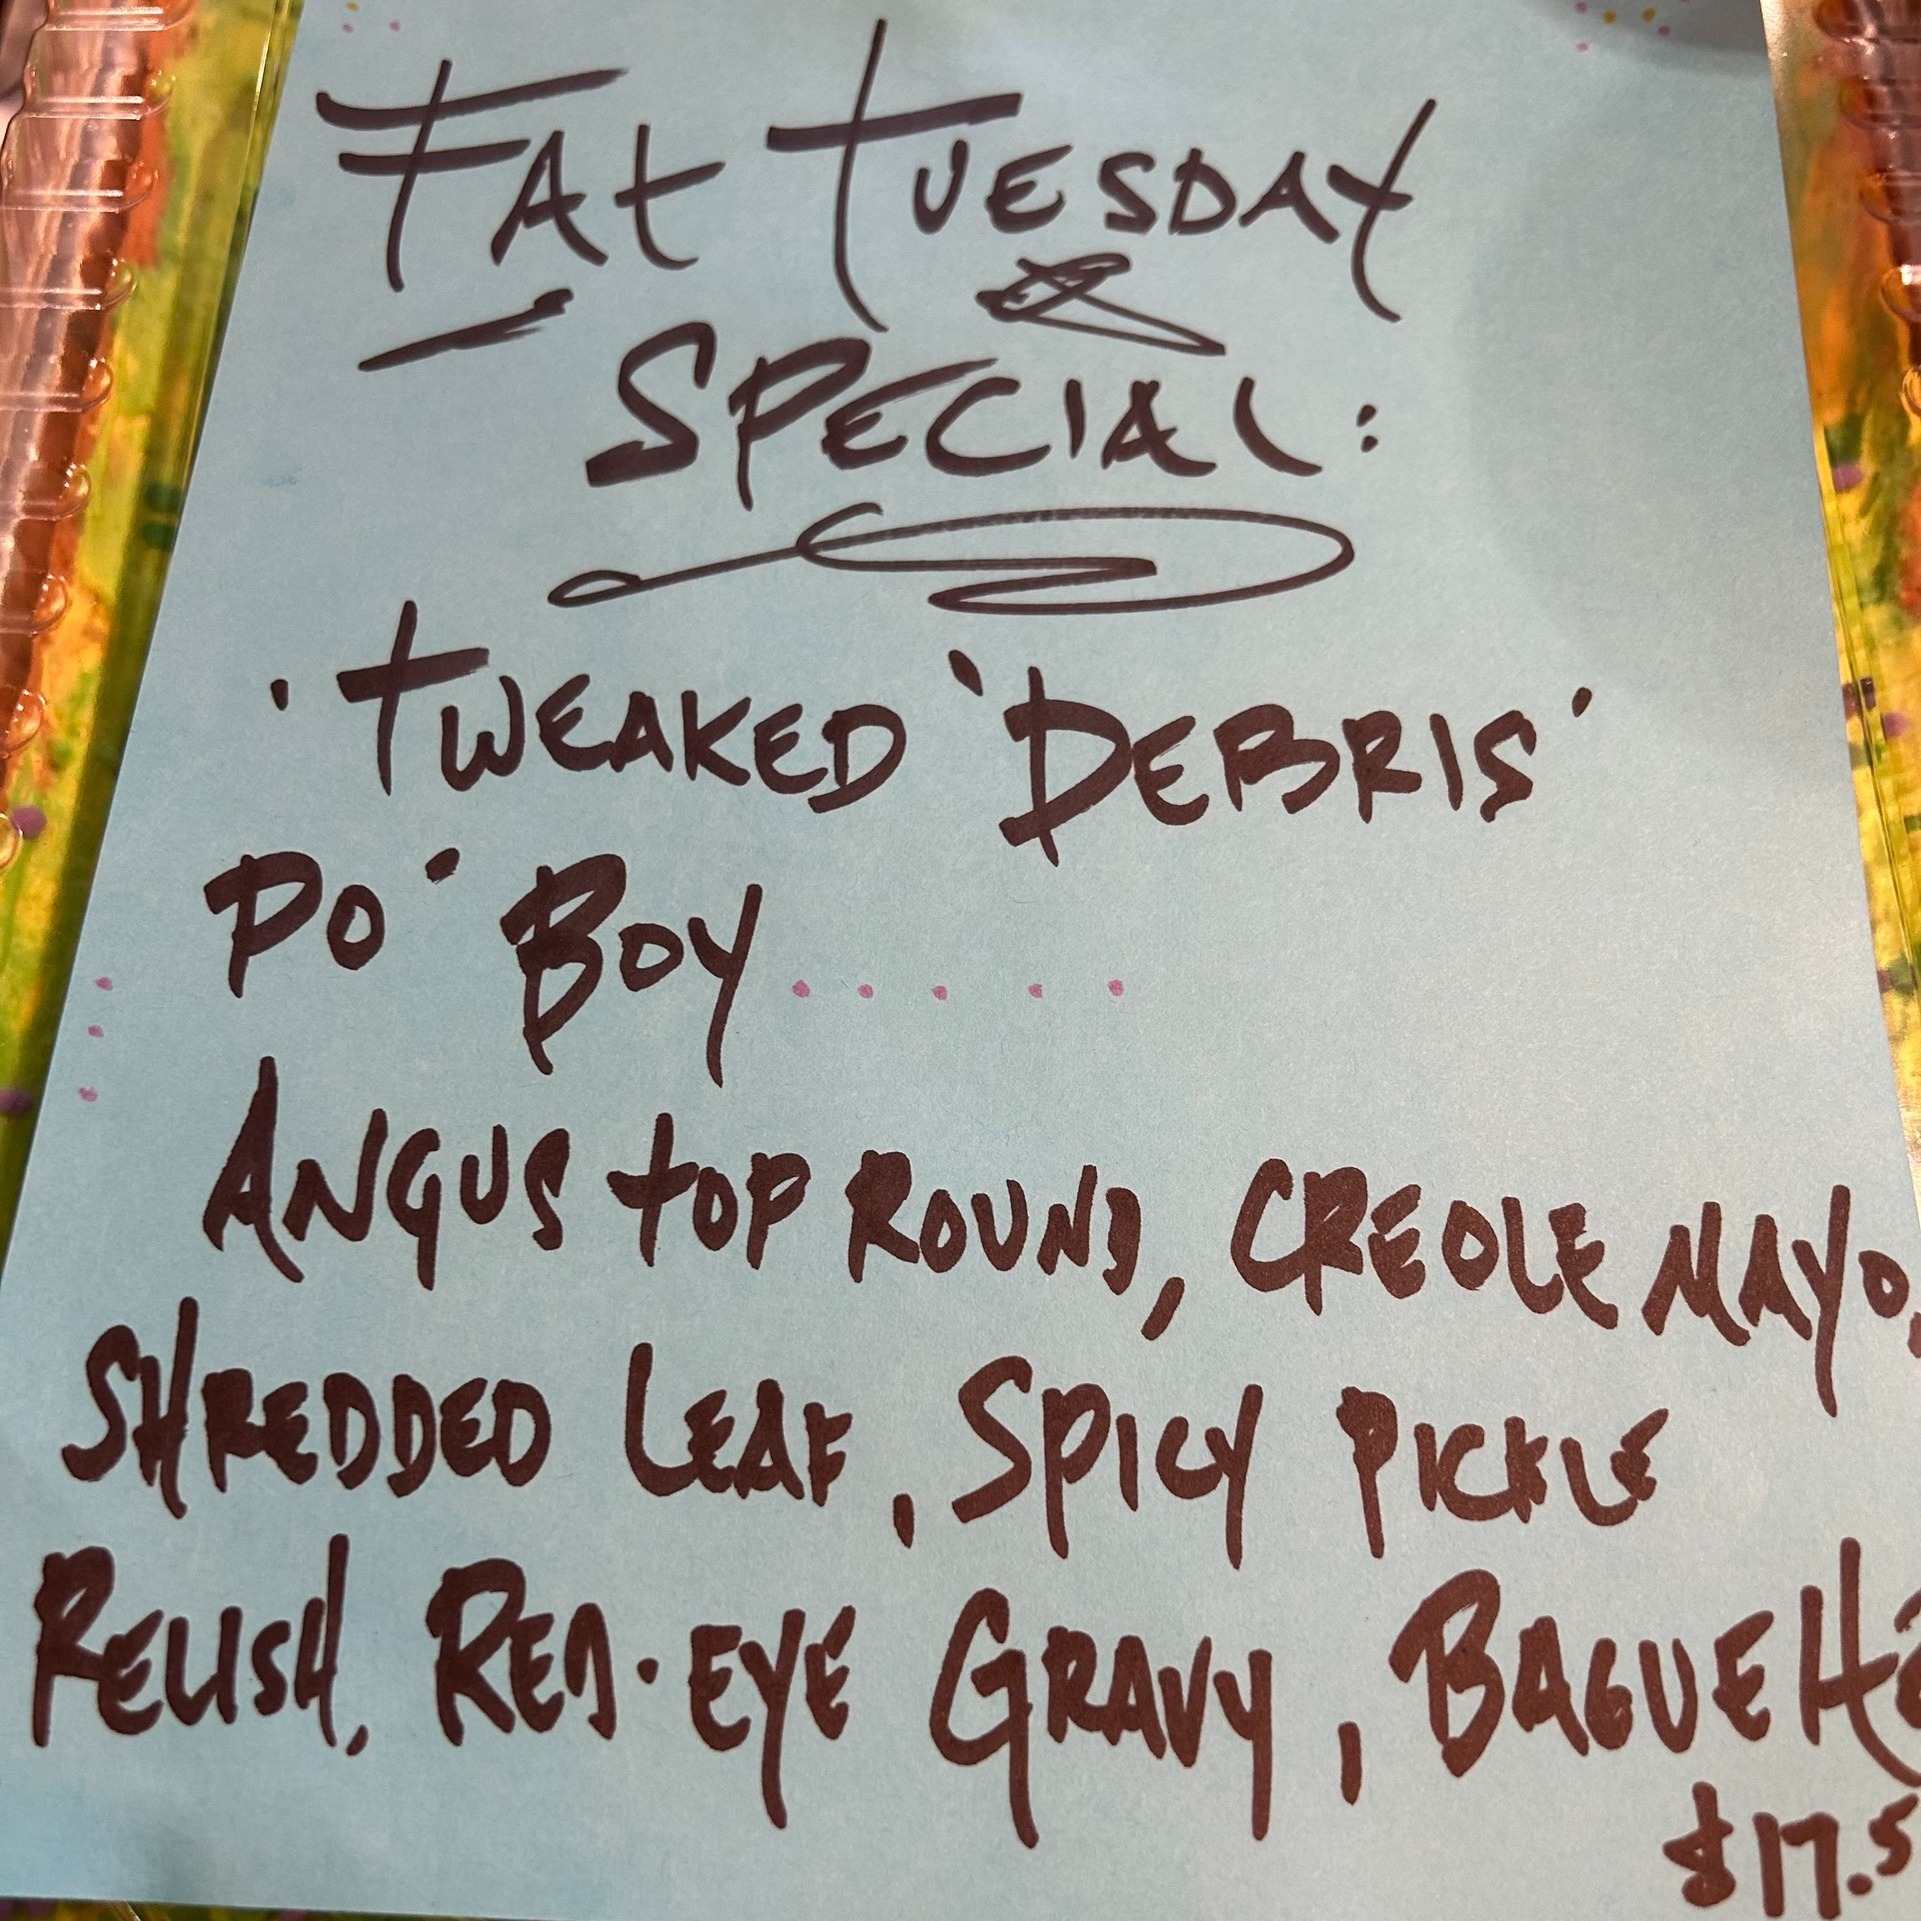 FAt TUESDAY
SPECIAL:
'TWEAKED 'DEBRIS'
PO' BOY.....
ANGUS tOP ROUND, CREOLE MAYO,
SHREDDED LEAF, SPICY PICKLE
RELISH, RED-EYE GRAVY, BAGUETTE
$17.5